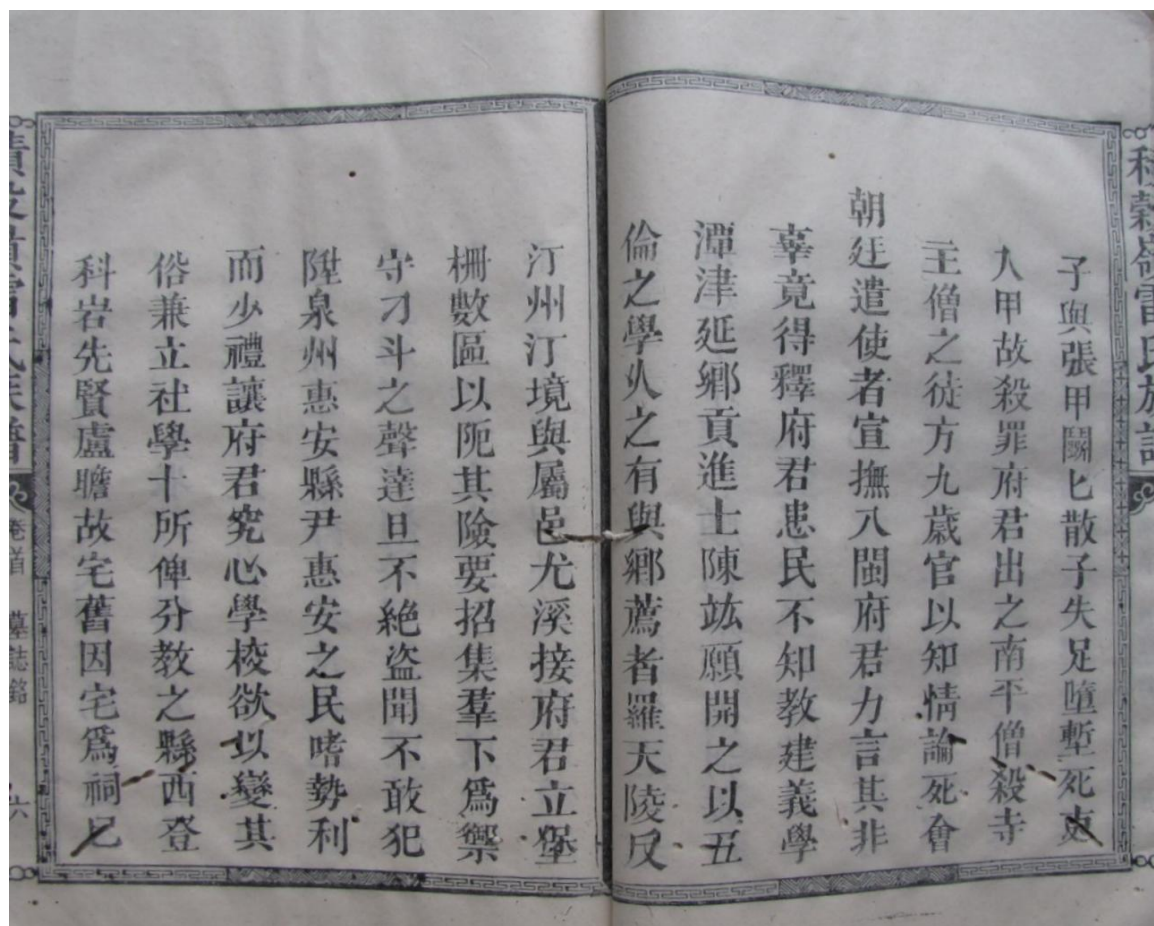 子與張甲鬭匕散子失足墮塹死吏
入甲故殺罪府君出之南平僧殺寺
主僧之徒方九歲官以知情論死會
朝廷遣使者宣撫八閩府君力言其非
辜竟得釋府君患民不知教建義學
潭津延鄉貢進士陳竑願開之以五
倫之學久之有與鄉薦者羅天陵反
汀州汀境與屬邑尤溪接府君立堡
柵數區以阨其險要招集羣下為禦
守刁斗之聲達旦不絕盜聞不敢犯
陞泉州惠安縣尹惠安之民嗜勢利
而少禮讓府君究心學校欲以變其
俗兼立社學十所俾分教之縣西登
科岩先賢盧瞻故宅舊因宅爲祠已
卷首
墓誌銘
六